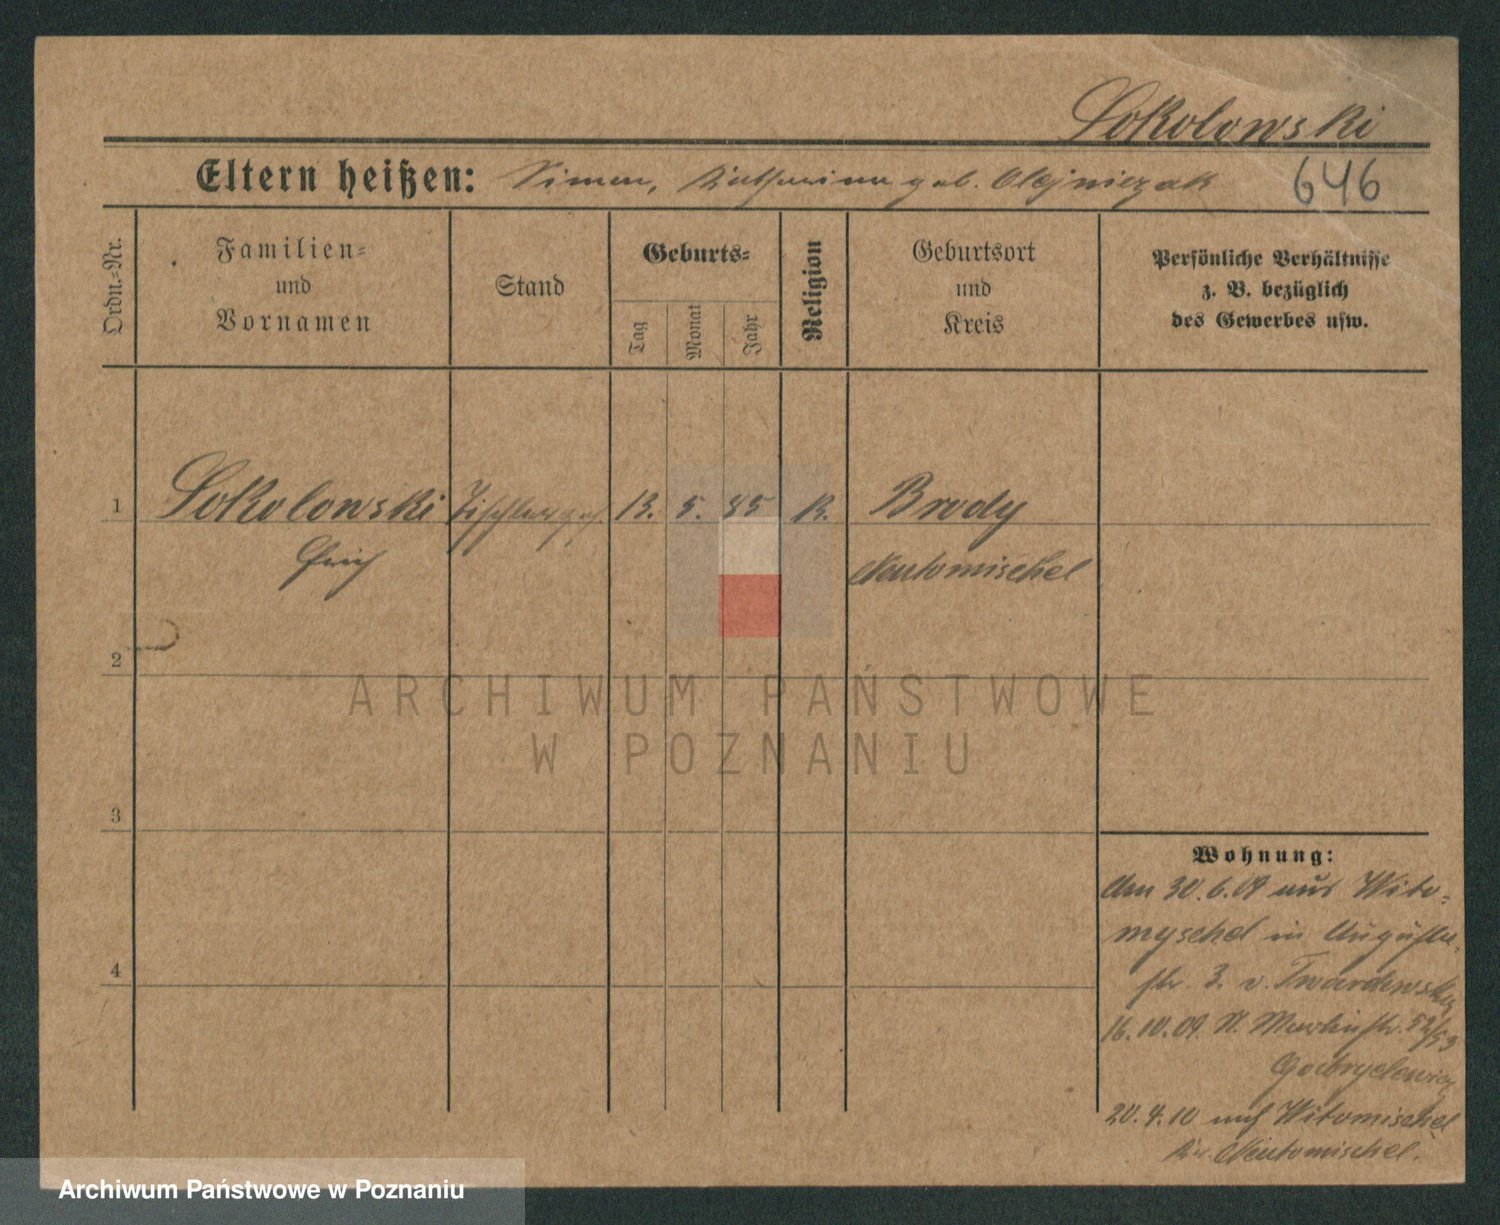 Sokolowski
Eltern heißen: Simon, Katharina geb. Olejniczak 646
Ordn.-Nr.
Familien-
und
Vornamen
Stand
Geburts-
Tag
Monat
Jahr
Religion
Geburtsort
und
Kreis
Persönliche Verhältnisse
z. B. bezüglich
des Gewerbes usw.
1 Sokolowski Tischlerges. 13. 5. 85 K. Brody
Erich Neutomischel
2
3
4
Wohnung:
Am 30.6.09 aus Wito-
myschel in Augusta-
str. 3. v. Twardowski
16.10.09. N. 52/53
Gabryelewicz
20.4.10 nach Witomischel
Kr. Neutomischel.
ARCHIWUM PAŃSTWOWE
W POZNANIU
Archiwum Państwowe w Poznaniu